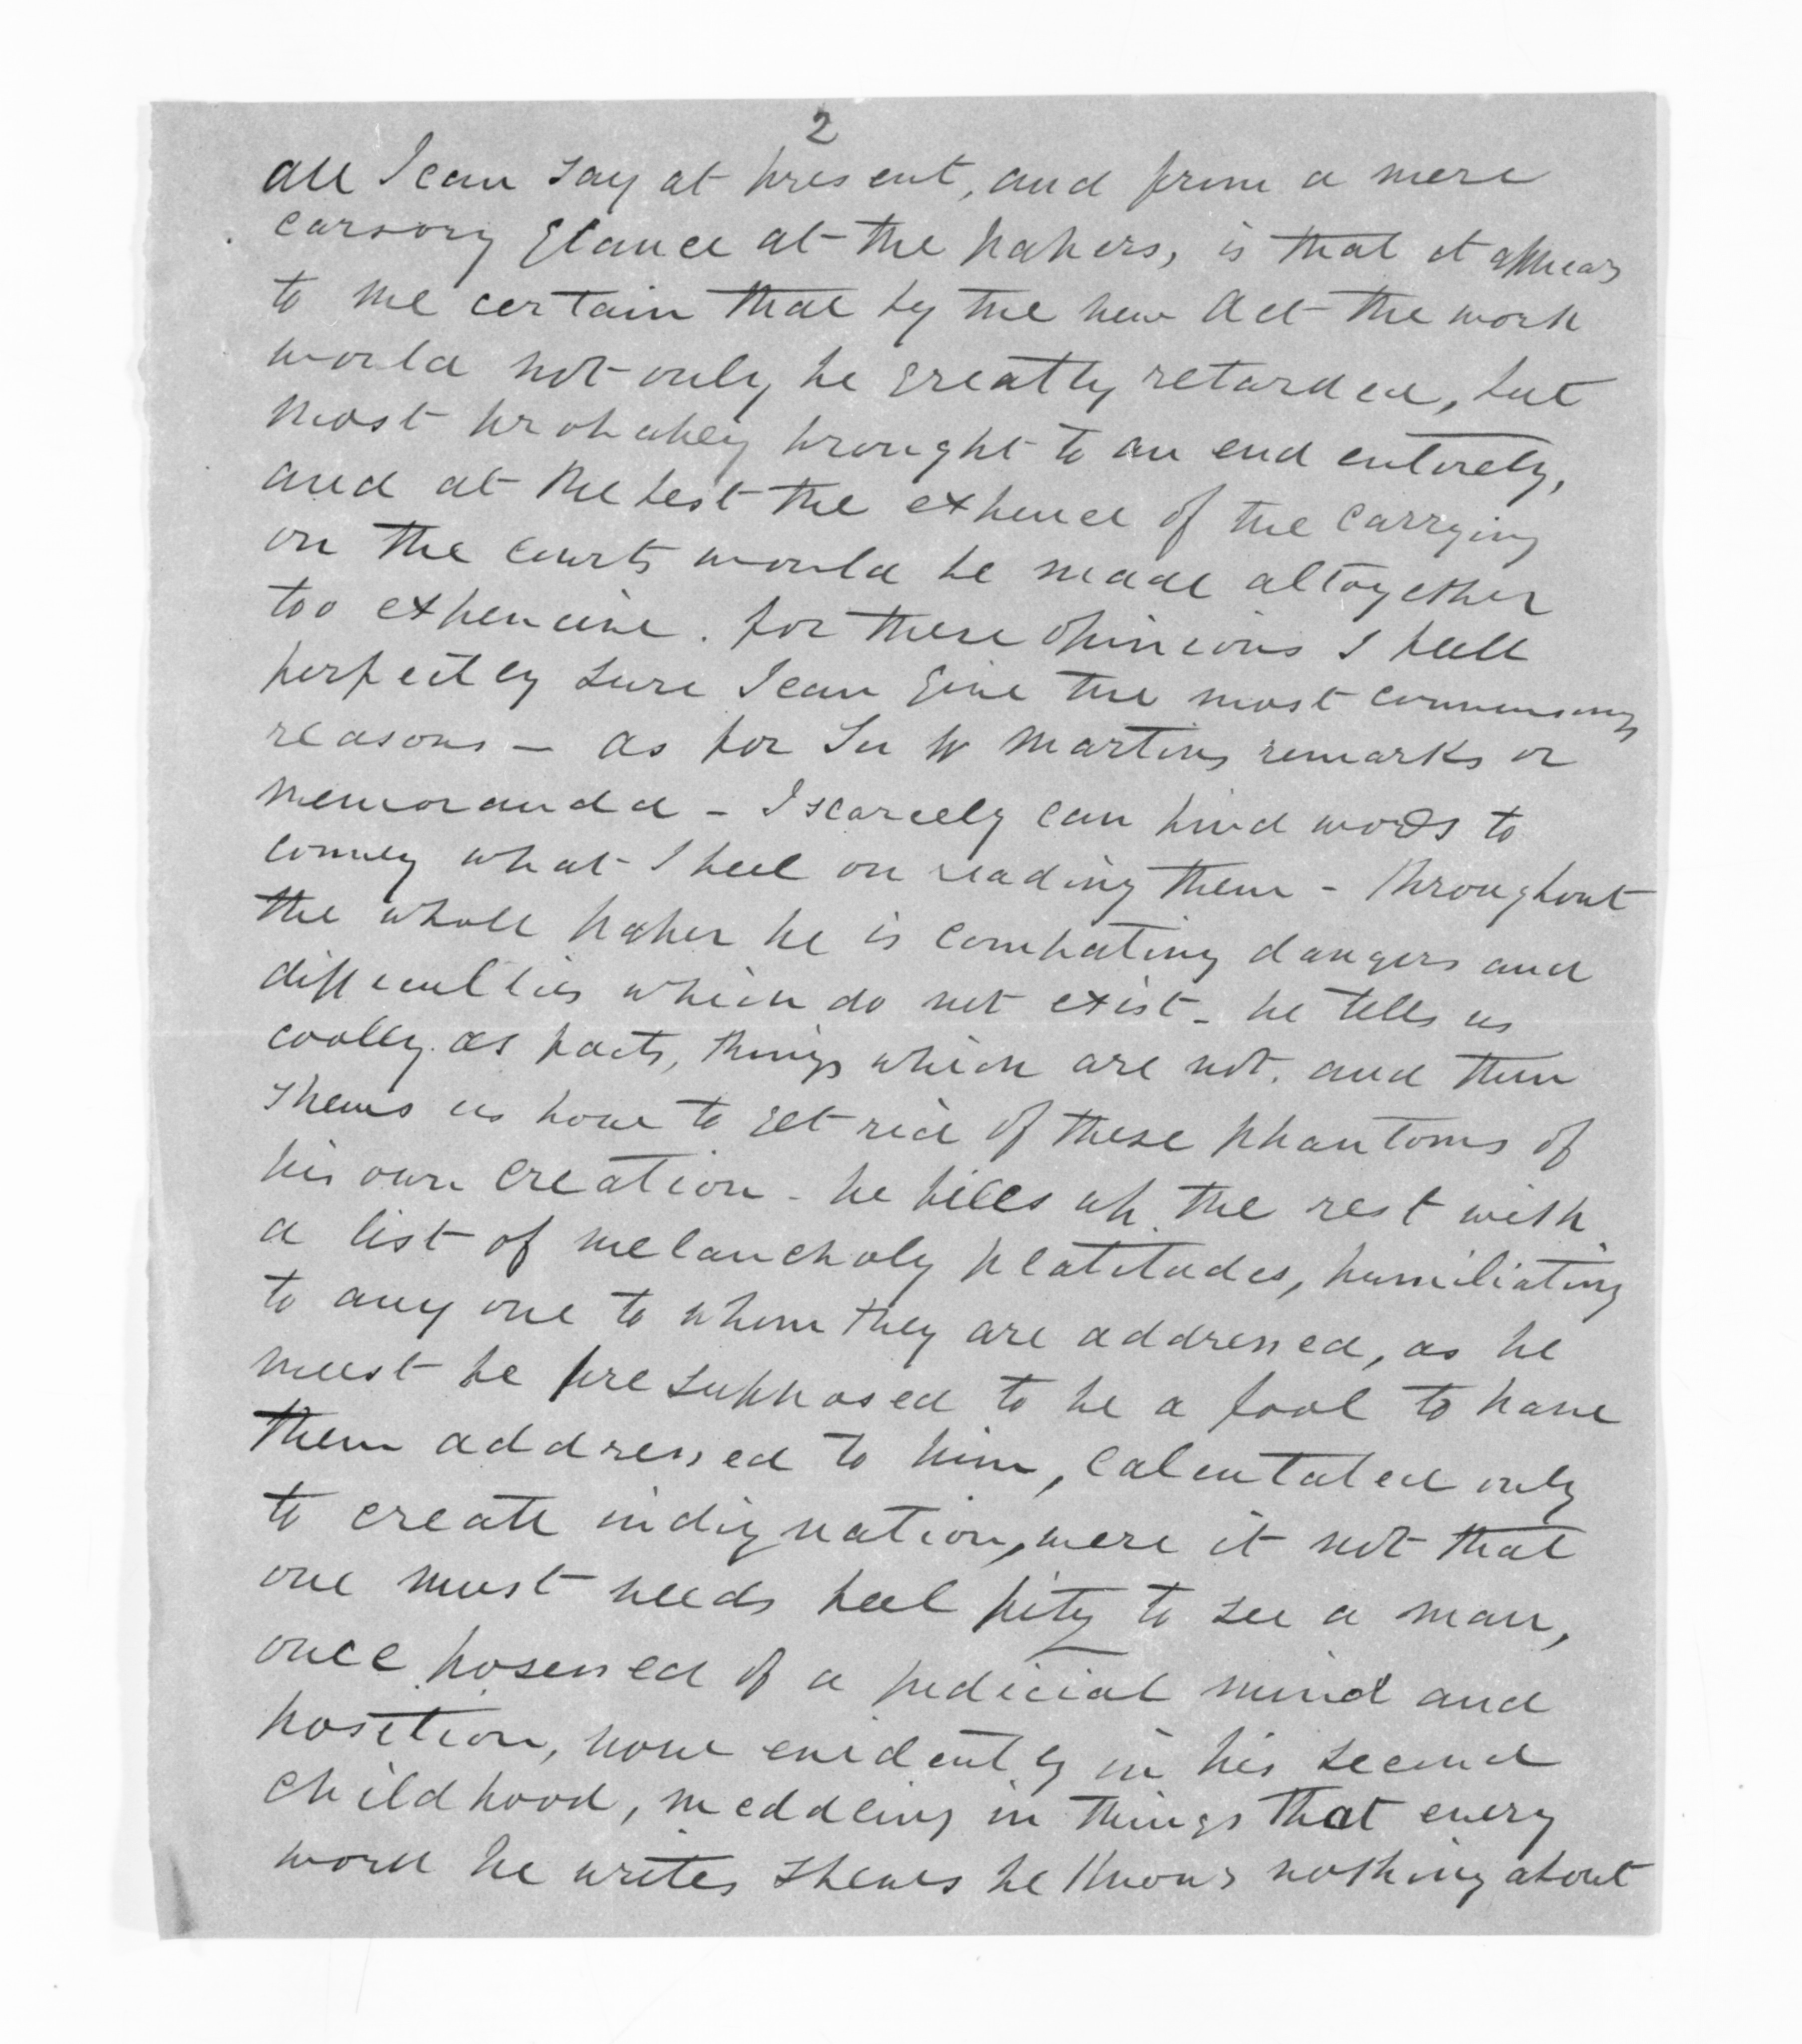 2
all I can say at present, and from a mere
cursory glance at the papers, is that it appears
to me certain that by the new Act the work
would not only be greatly retarded, but
most probabley brought to an end entirely,
and at the best the expence of the carrying
on the courts would be made altogether
too expencive. for these opinions I feell
perfectley sure I can give the most convinsing
reasons — as for Sir W Martins remarks or
memoranda - I scarcely can find words to
convey what I feel on reading them - Throughout
the whole paper he is combating dangers and
difficulties which do not exist - he tells us
coolly as facts, things which are not. and then
shews us how to get rid of these phantoms of
his own creation - he fills up the rest with
a list of melancholy platitudes, humiliating
to any one to whom they are addressed, as he
must be pre supposed to be a fool to have
them addressed to him, calculated only
to create indignation, were it not that
one must needs feel pity to see a man,
once posessed of a judicial mind and
position, now evidently in his second
childhood, meddling in things that every
word he writes shews he knows nothing about